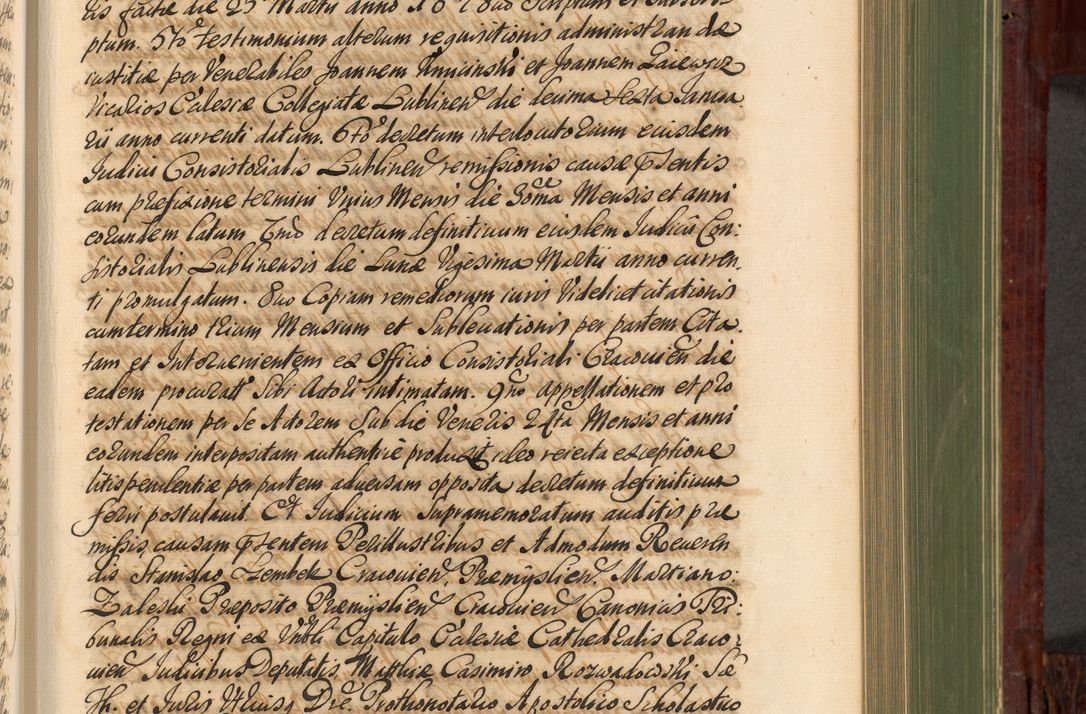 tis factie die 25 Martii anno 1678 8uo Scriptum et Subscri:
ptum. 5to testimonium alterum requisitionis administran dæ
iustitiæ per Venerabiles Joannem et Joannem Zaiewicz
Vicarios Ecclesiæ Collegiatæ Lublinen die decima sexta Janua
rii anno currenti datum. 6to decretum interlocutorium eiusdem
Judicii Consistorialis Lublinen remissionis causæ pñsentis
cum præfixione termini Unius Mensis die 30ma Mensis et anni
eorundem latum 7mo decretum definitiuum eiusdem Judicii Con:
sistorialis Lublinensis die Lunæ Vigesima Martii anno curren.
ti promulgatum. 8uo Copiam remediorum iuris Videlicet citationis
cum termino trium Mensium et Subleuationis per partem Cita.
tam et Interuenientem ex Officio Consistoriali Cracouien die
eadem procurat Sibi Actori intimatam. 9no appellationem et pro
testationem per se Actorem Sub die Veneris 24ta Mensis et anni
eorundem interpositam authentice produxit ideo reiecta exceptione
litispendentiæ per partem aduersam opposita decretum definitiuum
ferri postulauit. Et Judicium Supramemoratum auditis præ
missis causam pñsentem Perillustribus et Admodum Reueren
dis Stanislao Szembek Cracouien, Præmyslien, Martiano:
Zaleski Præposito Præmyslien Cracouien Canonicis Tri:
bunalis Regni ex Vñbli Capitulo Ecclesiæ Cathedralis Craco:
uien Judicibus Deputatis, Matthiæ Casimiro Rozwadowski Sæ
Th. et Juris Utrius Dre Prothonotario Apostolico Scholastico